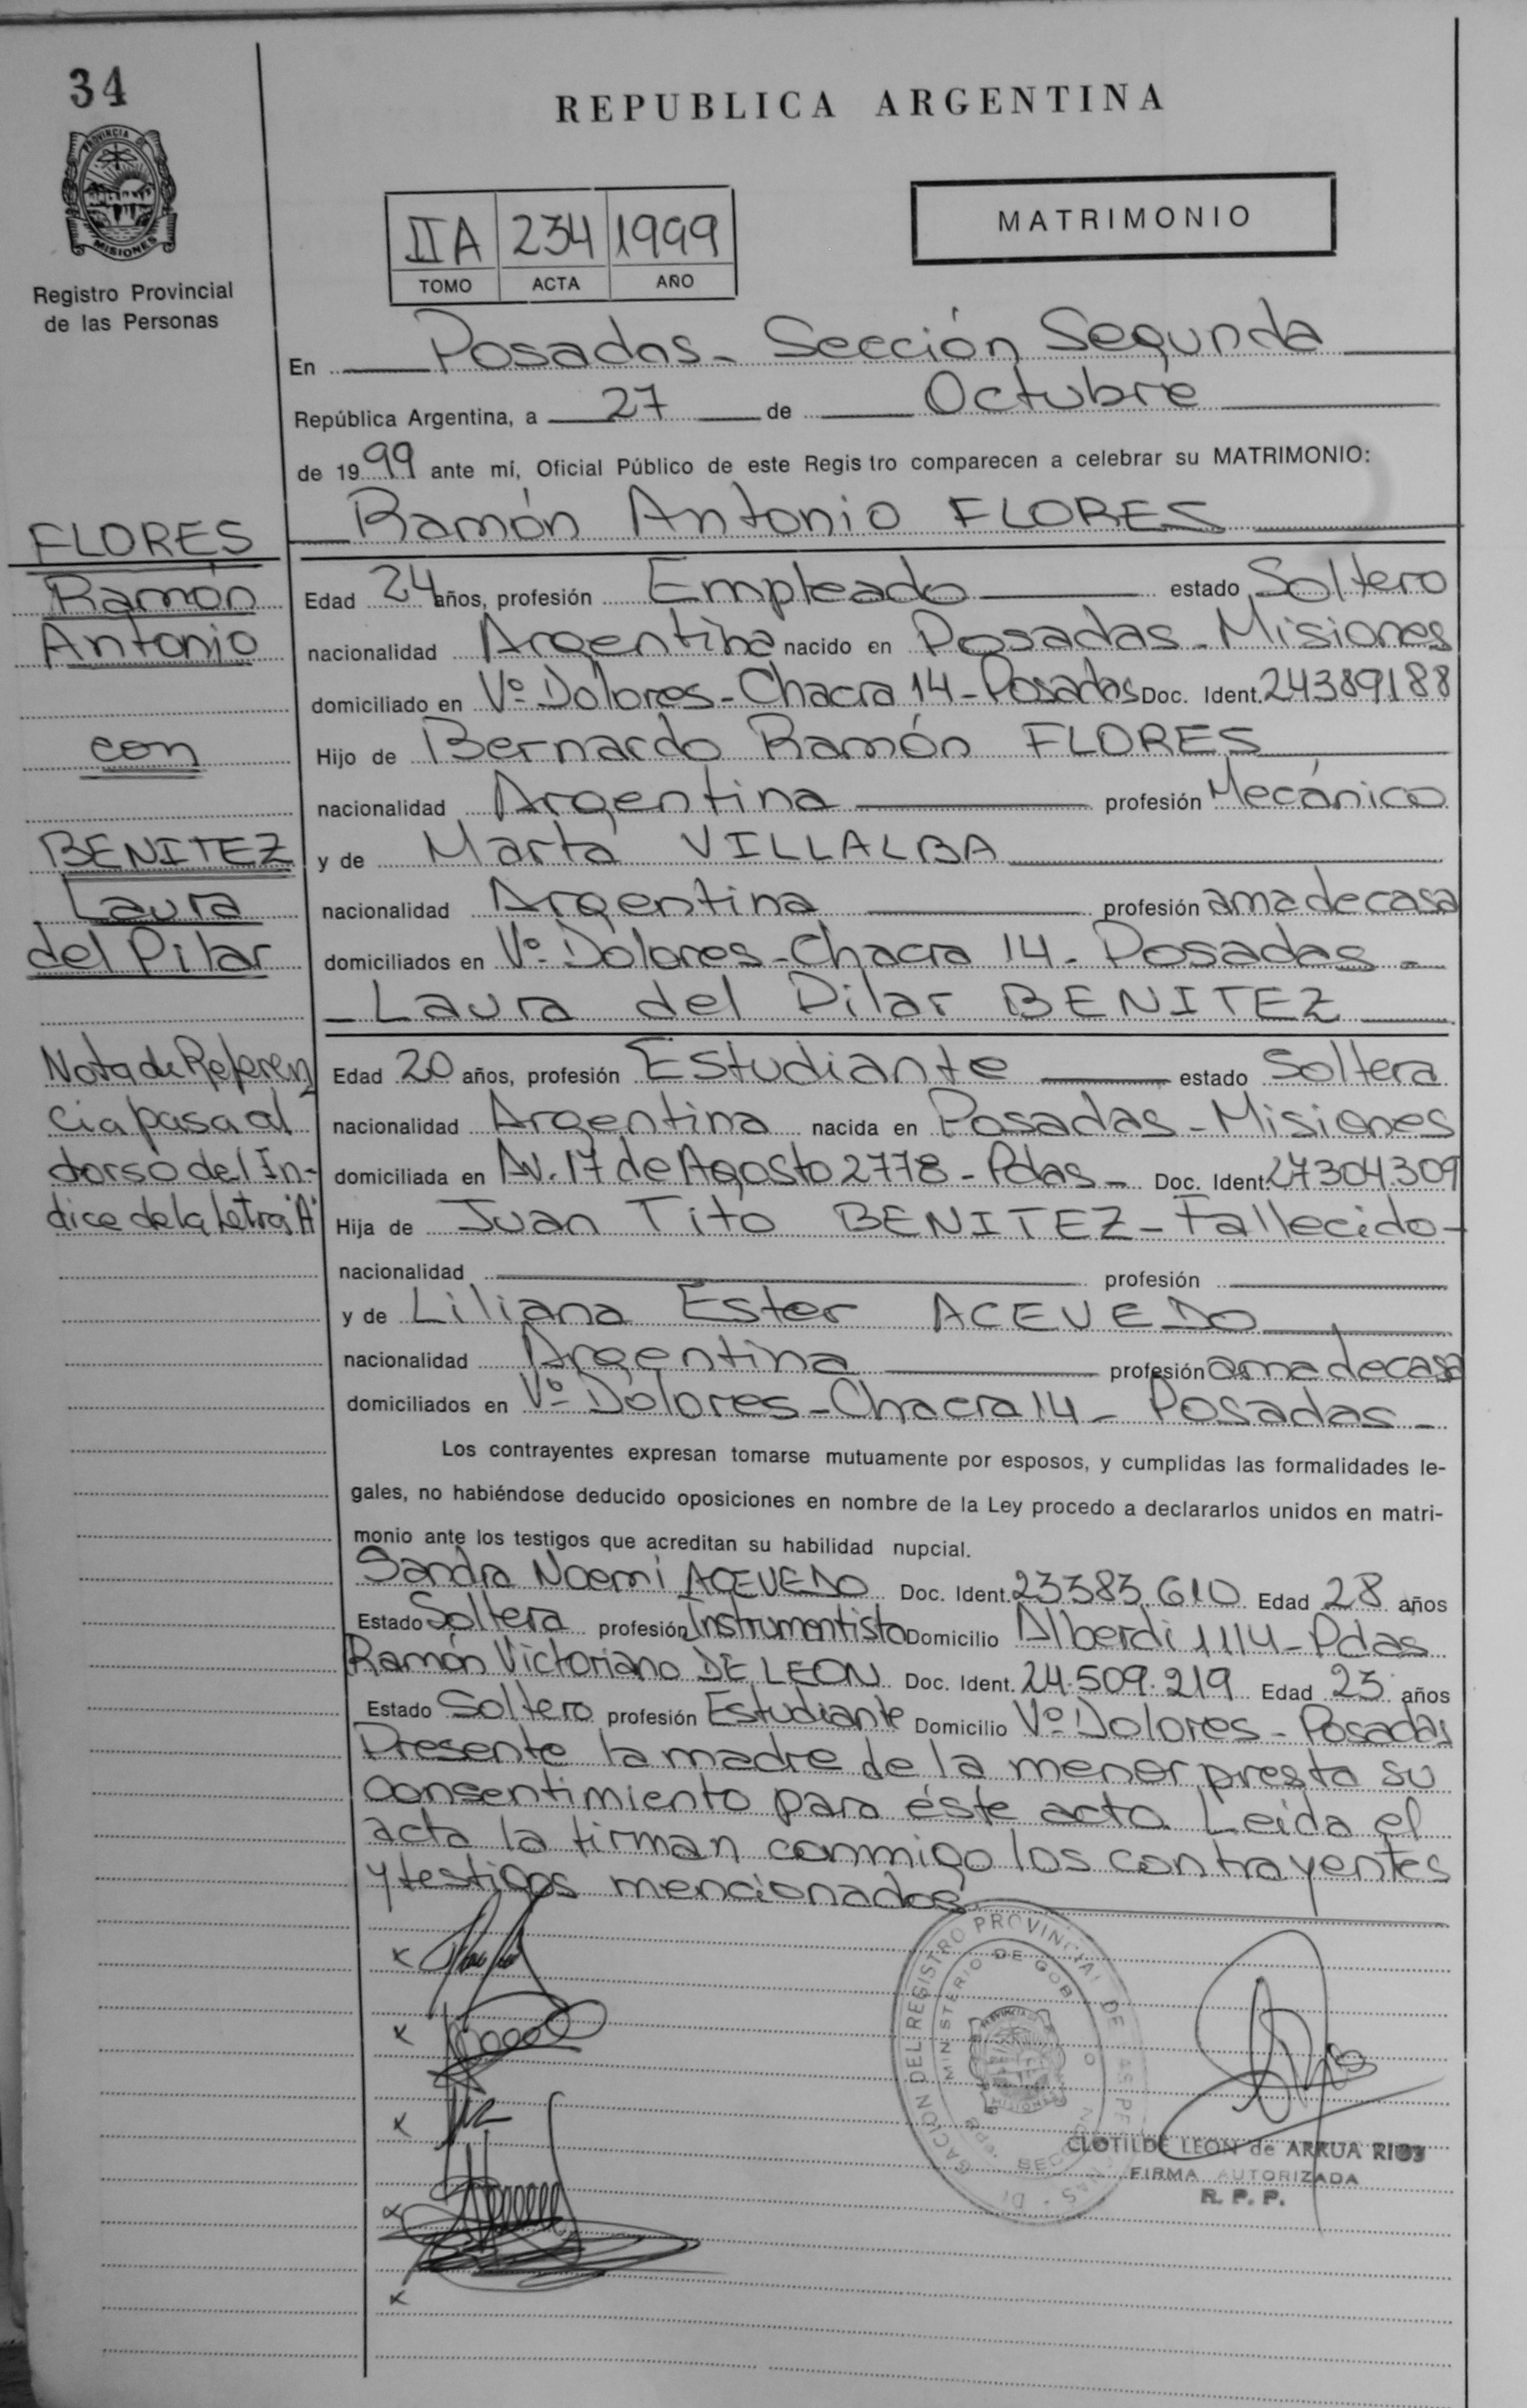 34
REPUBLICA ARGENTINA
PROVINCIA DE
MISIONES
Registro Provincial
de las Personas
MATRIMONIO
IIA 234 1999
TOMO ACTA AÑO
En Posadas - Sección Segunda
República Argentina, a 27 de Octubre
de 1999 ante mí, Oficial Público de este Regis tro comparecen a celebrar su MATRIMONIO:
Ramón Antonio FLORES
FLORES
Ramón
Antonio
con
BENITEZ
Laura
del Pilar
Nota de Referen
cia pasa al
dorso del In-
dice de la Letra "A"
Edad 24 años, profesión Empleado estado Soltero
nacionalidad Argentina nacido en Posadas - Misiones
domiciliado en Vº Dolores - Chacra 14 - Posadas Doc. Ident. 24389188
Hijo de Bernardo Ramón FLORES
nacionalidad Argentina profesión Mecánico
y de Marta VILLALBA
nacionalidad Argentina profesión ama de casa
domiciliados en Vº Dolores - Chacra 14 - Posadas -
Laura del Pilar BENITEZ
Edad 20 años, profesión Estudiante estado Soltera
nacionalidad Argentina nacida en Posadas - Misiones
domiciliada en Av. 17 de Agosto 2778 - Pdas - Doc. Ident. 27304.309
Hija de Juan Tito BENITEZ - Fallecido -
nacionalidad profesión
y de Liliana Ester ACEVEDO
nacionalidad Argentina profesión ama de casa
domiciliados en Vº Dolores - Chacra 14 - Posadas -
Los contrayentes expresan tomarse mutuamente por esposos, y cumplidas las formalidades le-
gales, no habiéndose deducido oposiciones en nombre de la Ley procedo a declararlos unidos en matri-
monio ante los testigos que acreditan su habilidad nupcial.
Sandra Noemí ACEVEDO Doc. Ident. 23383.610 Edad 28 años
Estado Soltera profesión Instrumentista Domicilio Alberdi 1114 - Pdas
Ramón Victoriano DE LEON Doc. Ident. 24.509.219 Edad 23 años
Estado Soltero profesión Estudiante Domicilio Vº Dolores - Posadas
Presente la madre de la menor presta su
consentimiento para éste acto. Leída el
acta la firman conmigo los contrayentes
y testigos mencionados
x
x
x
x
x
REGISTRO PROVINCIAL DE
MINISTERIO DE GOB
CLOTILDE LEON de ARRUA RIOS
FIRMA AUTORIZADA
R. P. P.